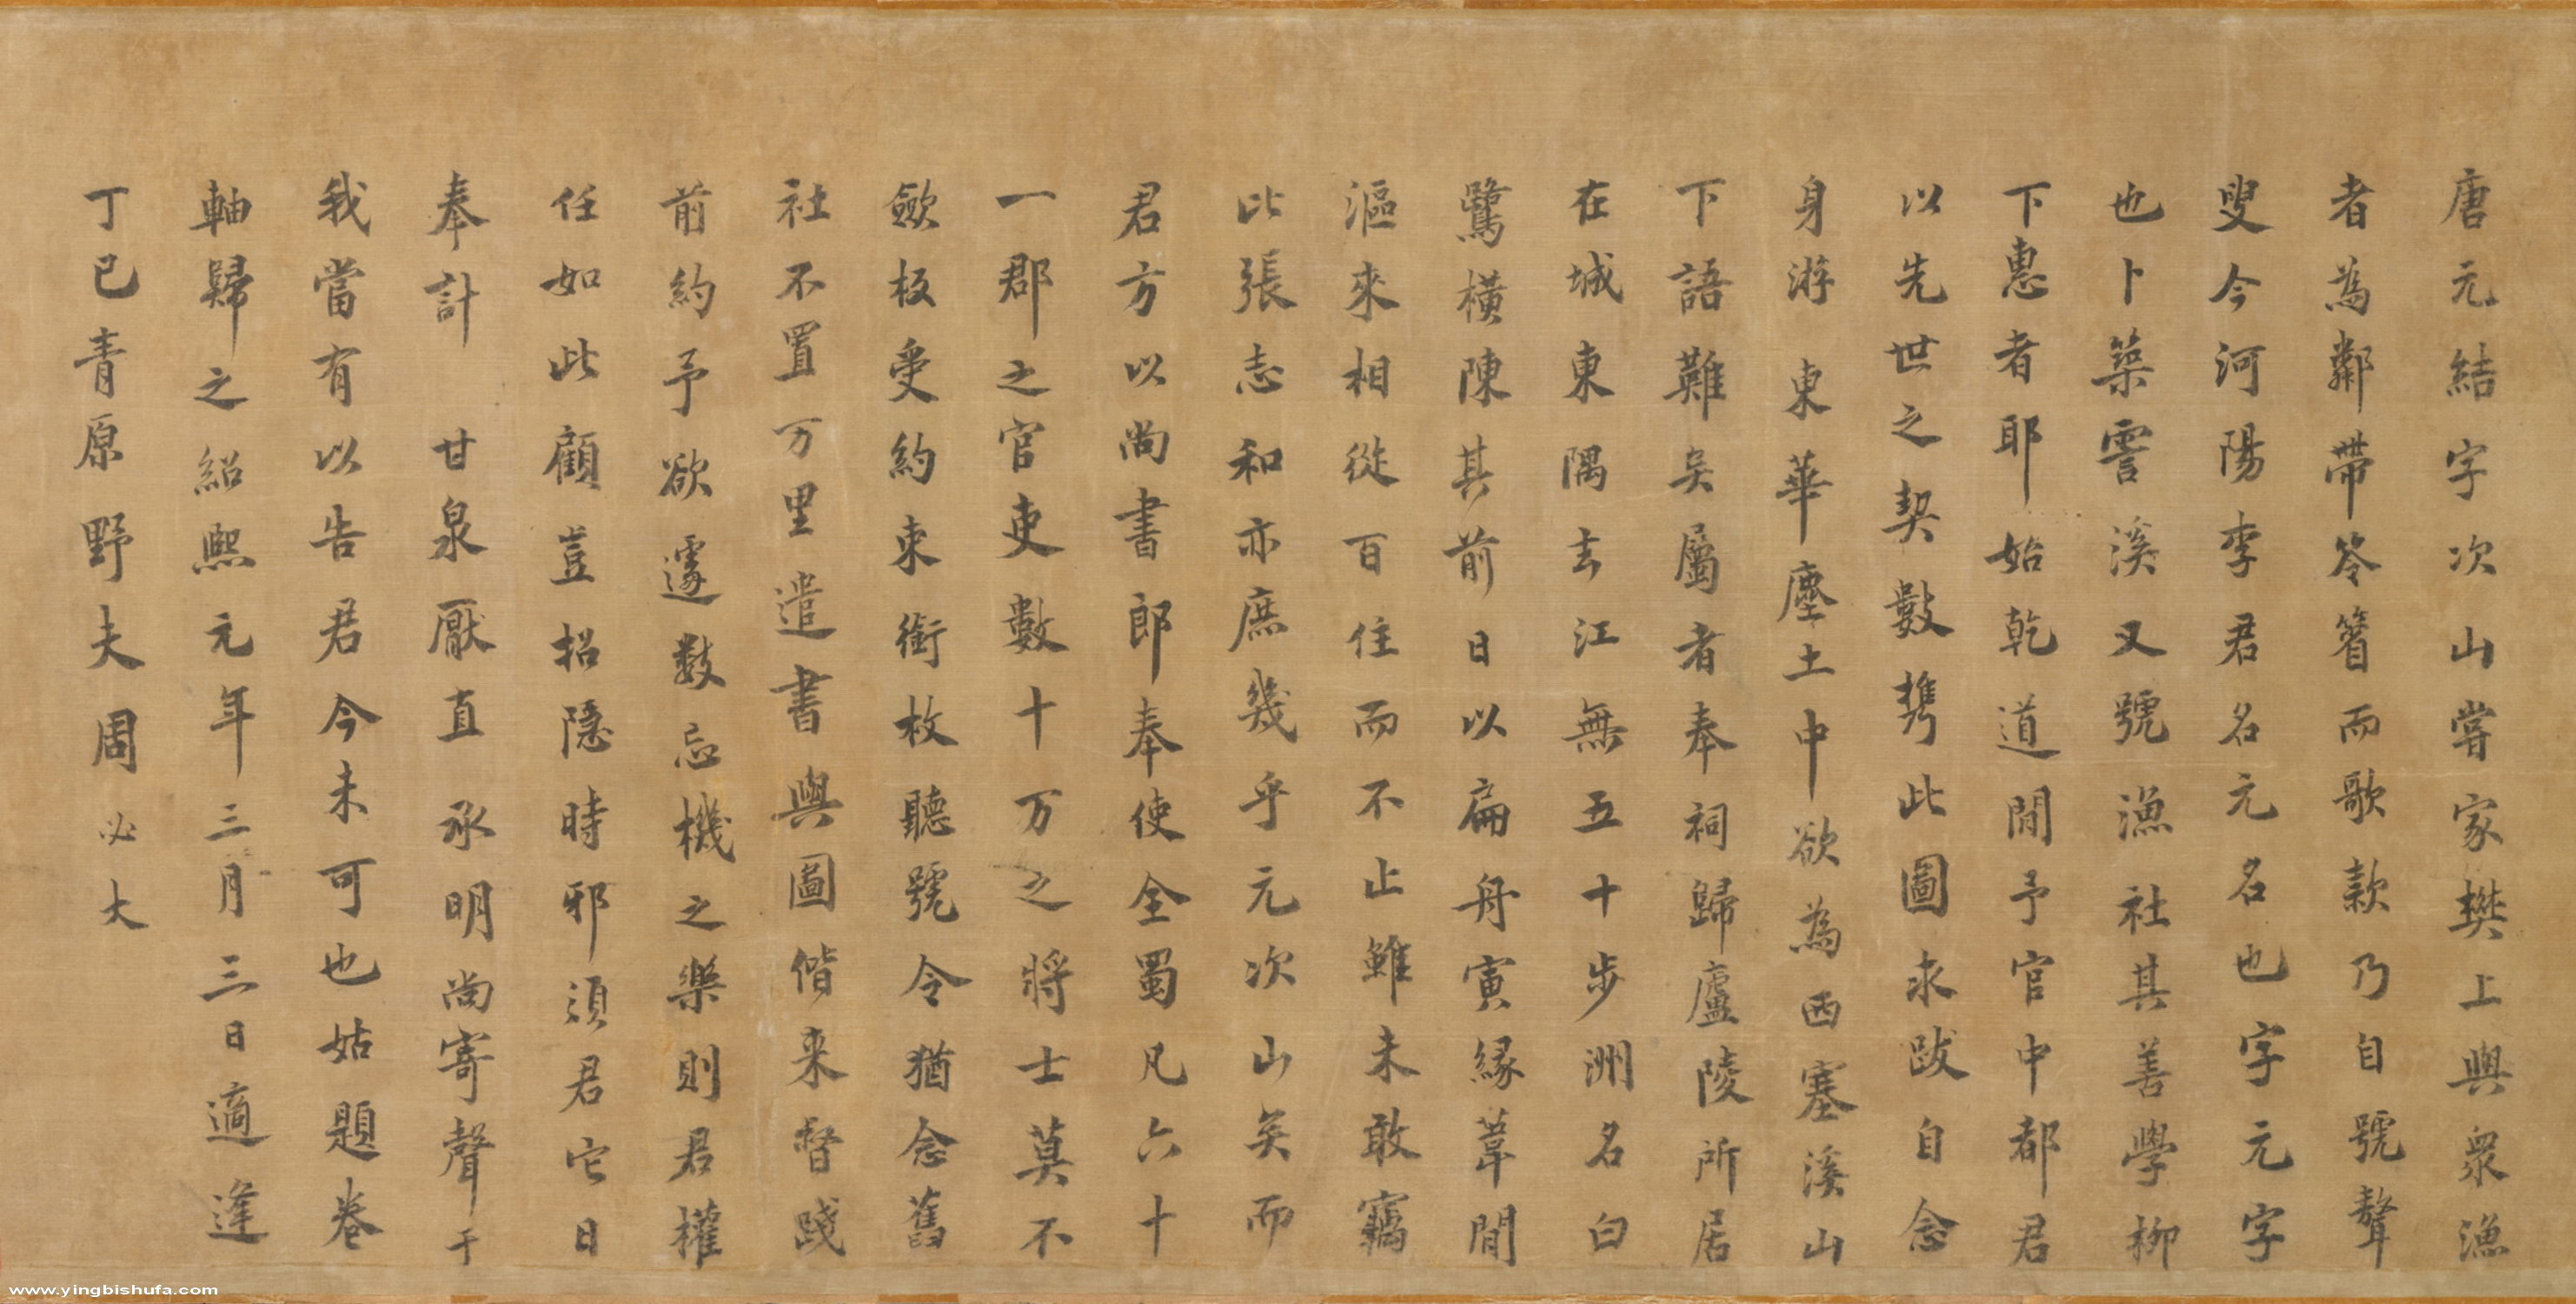 唐元結字次山嘗家樊上與衆漁
者為鄰帶笭箵而歌欵乃自號聱
叟今河陽李君名元名也字元字
也卜築霅溪又號漁社其善學柳
下惠者耶始乾道間予官中都君
以先世之契數携此圖求跋自念
身游東華塵土中欲為西塞溪山
下語難矣屬者奉祠歸廬陵所居
在城東隅去江無五十步洲名白
鷺橫陳其前日以扁舟寅緣葦間
漚來相從百住而不止雖未敢竊
比張志和亦庶幾乎元次山矣而
君方以尚書郎奉使全蜀凡六十
一郡之官吏數十万之將士莫不
歛板受約束銜枚聽號令猶念舊
社不置万里遣書與圖偕来督踐
前約予欲遽數忘機之樂則君權
任如此顧豈招隱時邪須君它日
奉計甘泉厭直承明尚寄聲于
我當有以告君今未可也姑題卷
軸歸之紹熙元年三月三日適逢
丁巳青原野夫周必大
www.yingbishufa.com